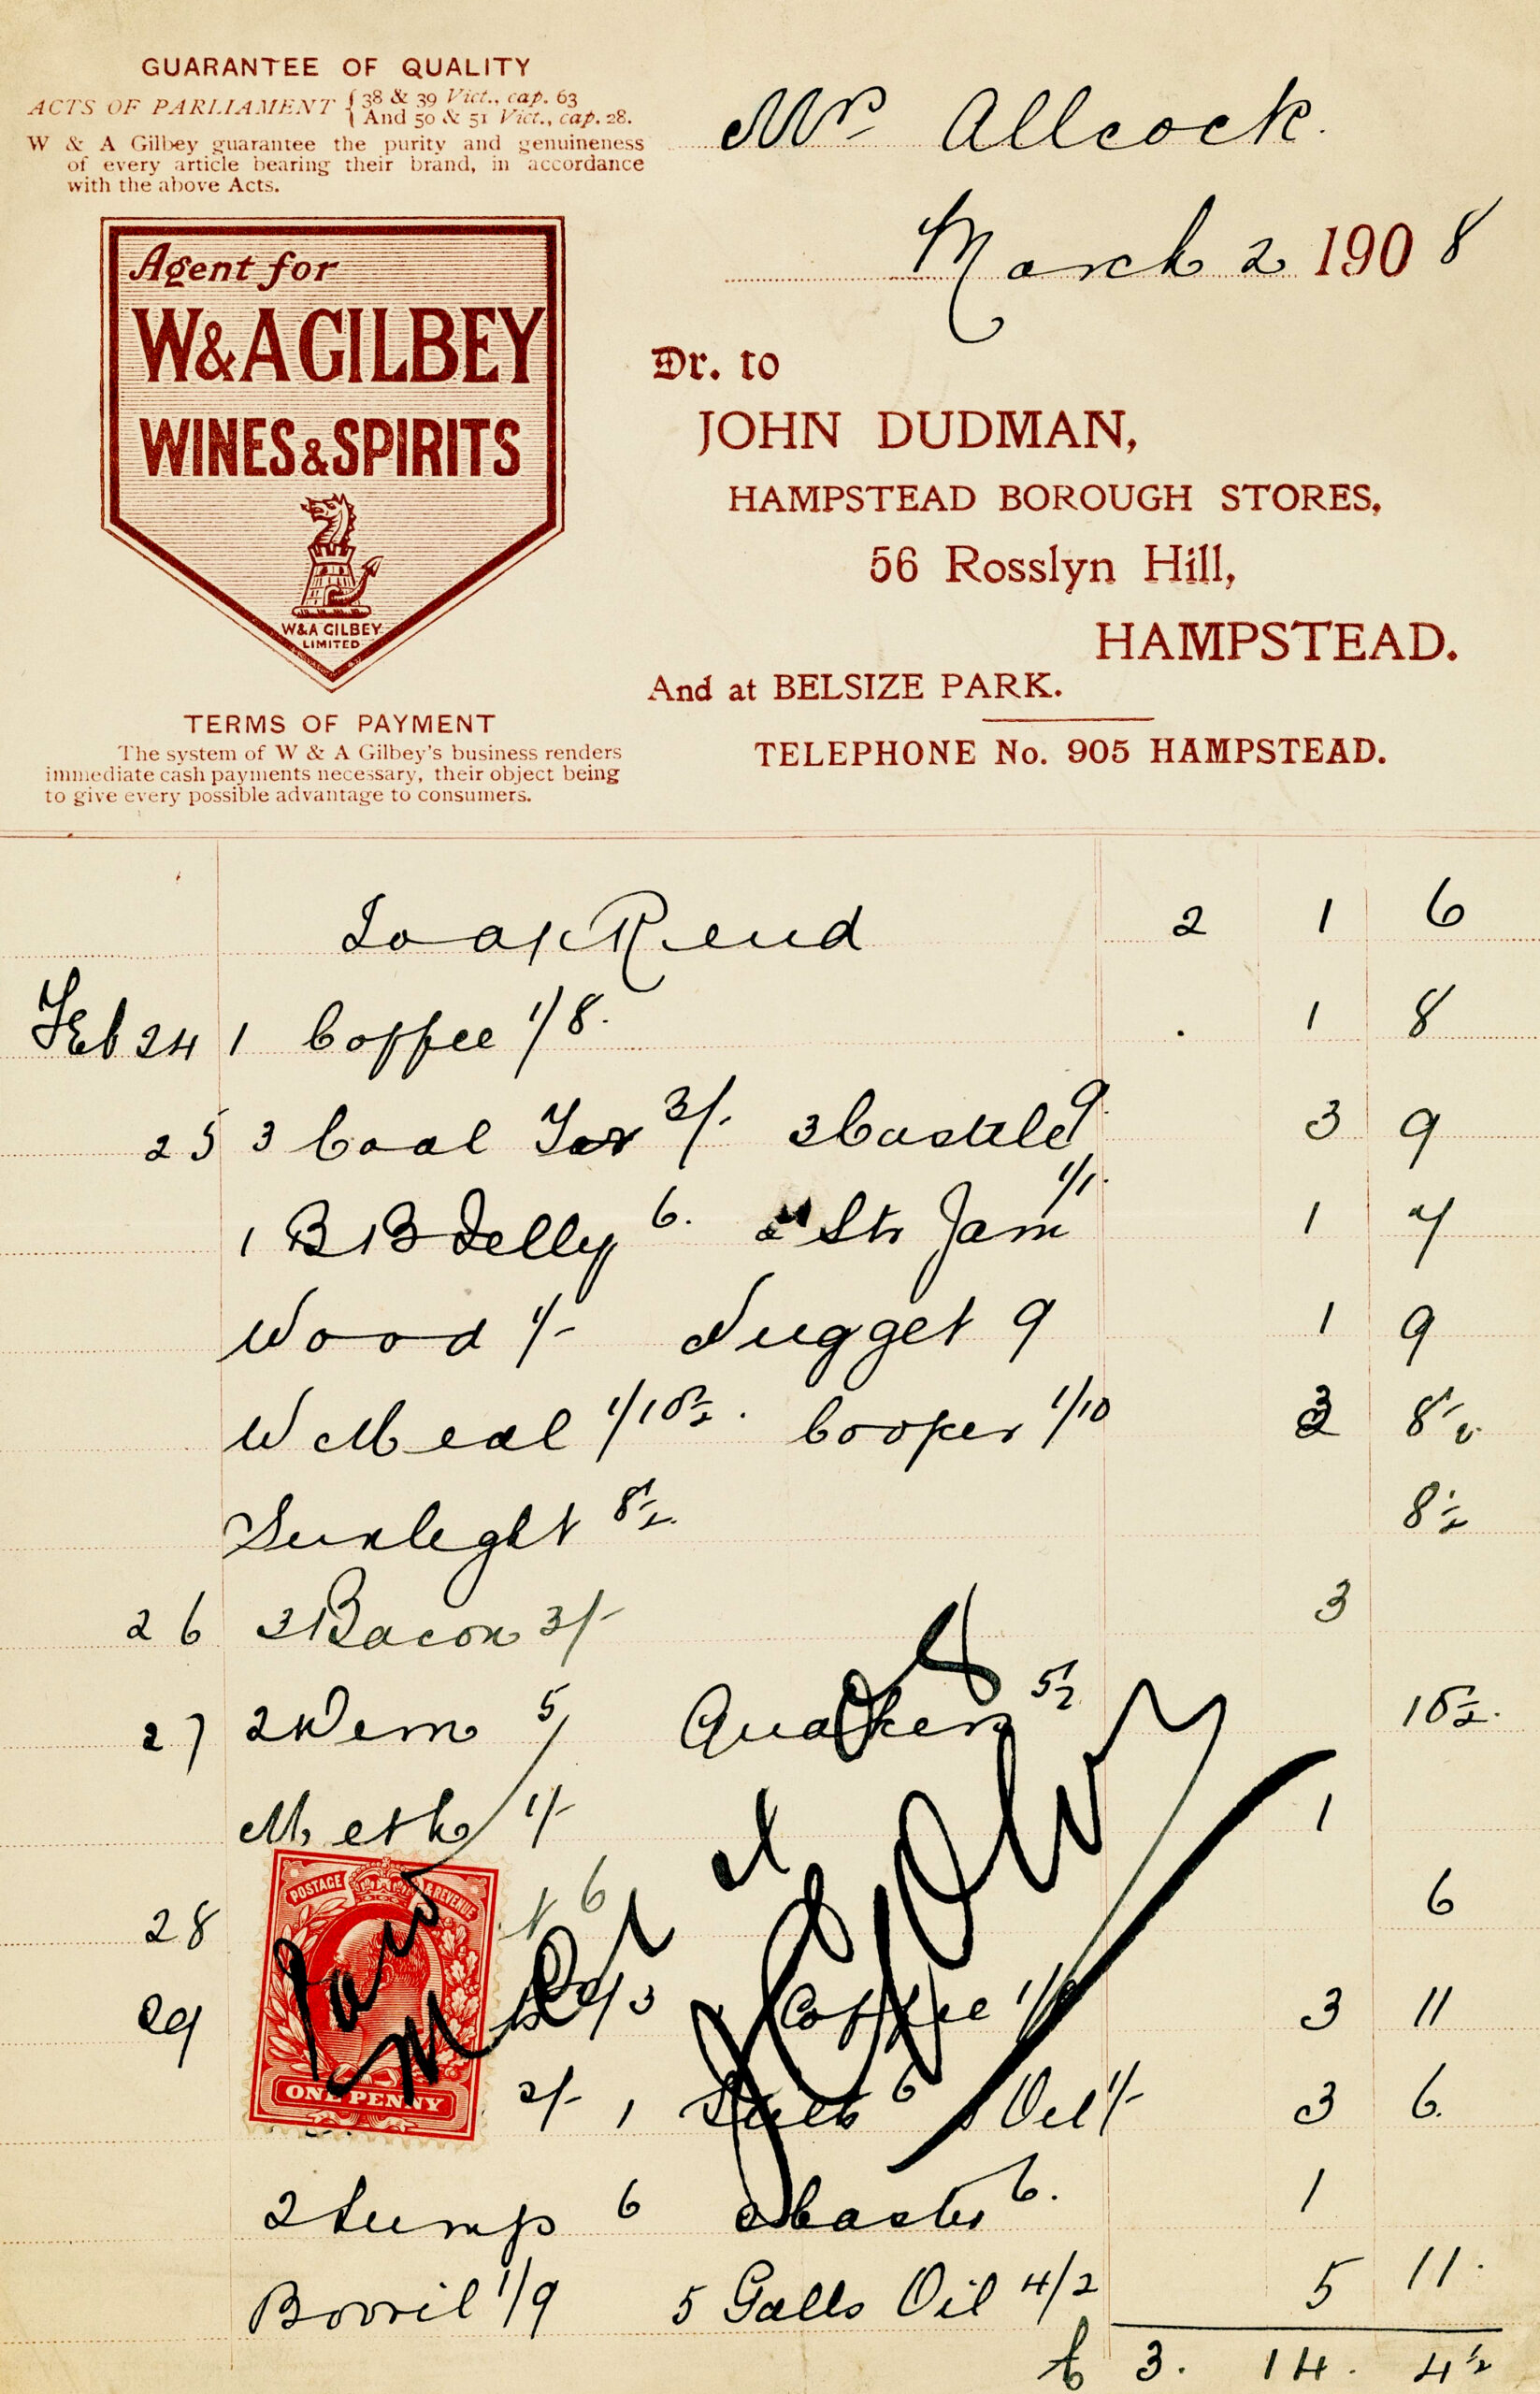 GUARANTEE OF QUALITY
ACTS OF PARLIAMENT { 38 & 39 Vict., cap. 63
{ And 50 & 51 Vict., cap. 28.
W & A Gilbey guarantee the purity and genuineness
of every article bearing their brand, in accordance
with the above Acts.
Agent for
W&A GILBEY
WINES & SPIRITS
W & A GILBEY
LIMITED
TERMS OF PAYMENT
The system of W & A Gilbey's business renders
immediate cash payments necessary, their object being
to give every possible advantage to consumers.
Mrs Allcock.
March 2 1908
Dr. to
JOHN DUDMAN,
HAMPSTEAD BOROUGH STORES,
56 Rosslyn Hill,
HAMPSTEAD.
And at BELSIZE PARK.
TELEPHONE No. 905 HAMPSTEAD.
To a/c Rend 2 1 6
Feb 24 1 Coffee 1/8. 1 8
25 3 Coal Tar 3/. 3 Castile 9. 3 9
1 BB Jelly 6. 2 Str Jam 1/1. 1 7
Wood 1/- Nugget 9 1 9
W Meal 1/10½. Cooper 1/10 3 8½
Sunlight 8½ 8½
26 3 Bacon 3/- 3
27 2 Dem 5 Quaker 5½ 10½.
Meth 1/- 1
28 6 6
29 2/3 Coffee 1/8 3 11
2/- 1 6 Oil 1/- 3 6.
2 Lump 6 2 Caster 6. 1
Bovril 1/9 5 Galls Oil 4/2 5 11.
£ 3. 14. 4½
POSTAGE & REVENUE
ONE PENNY
Paid